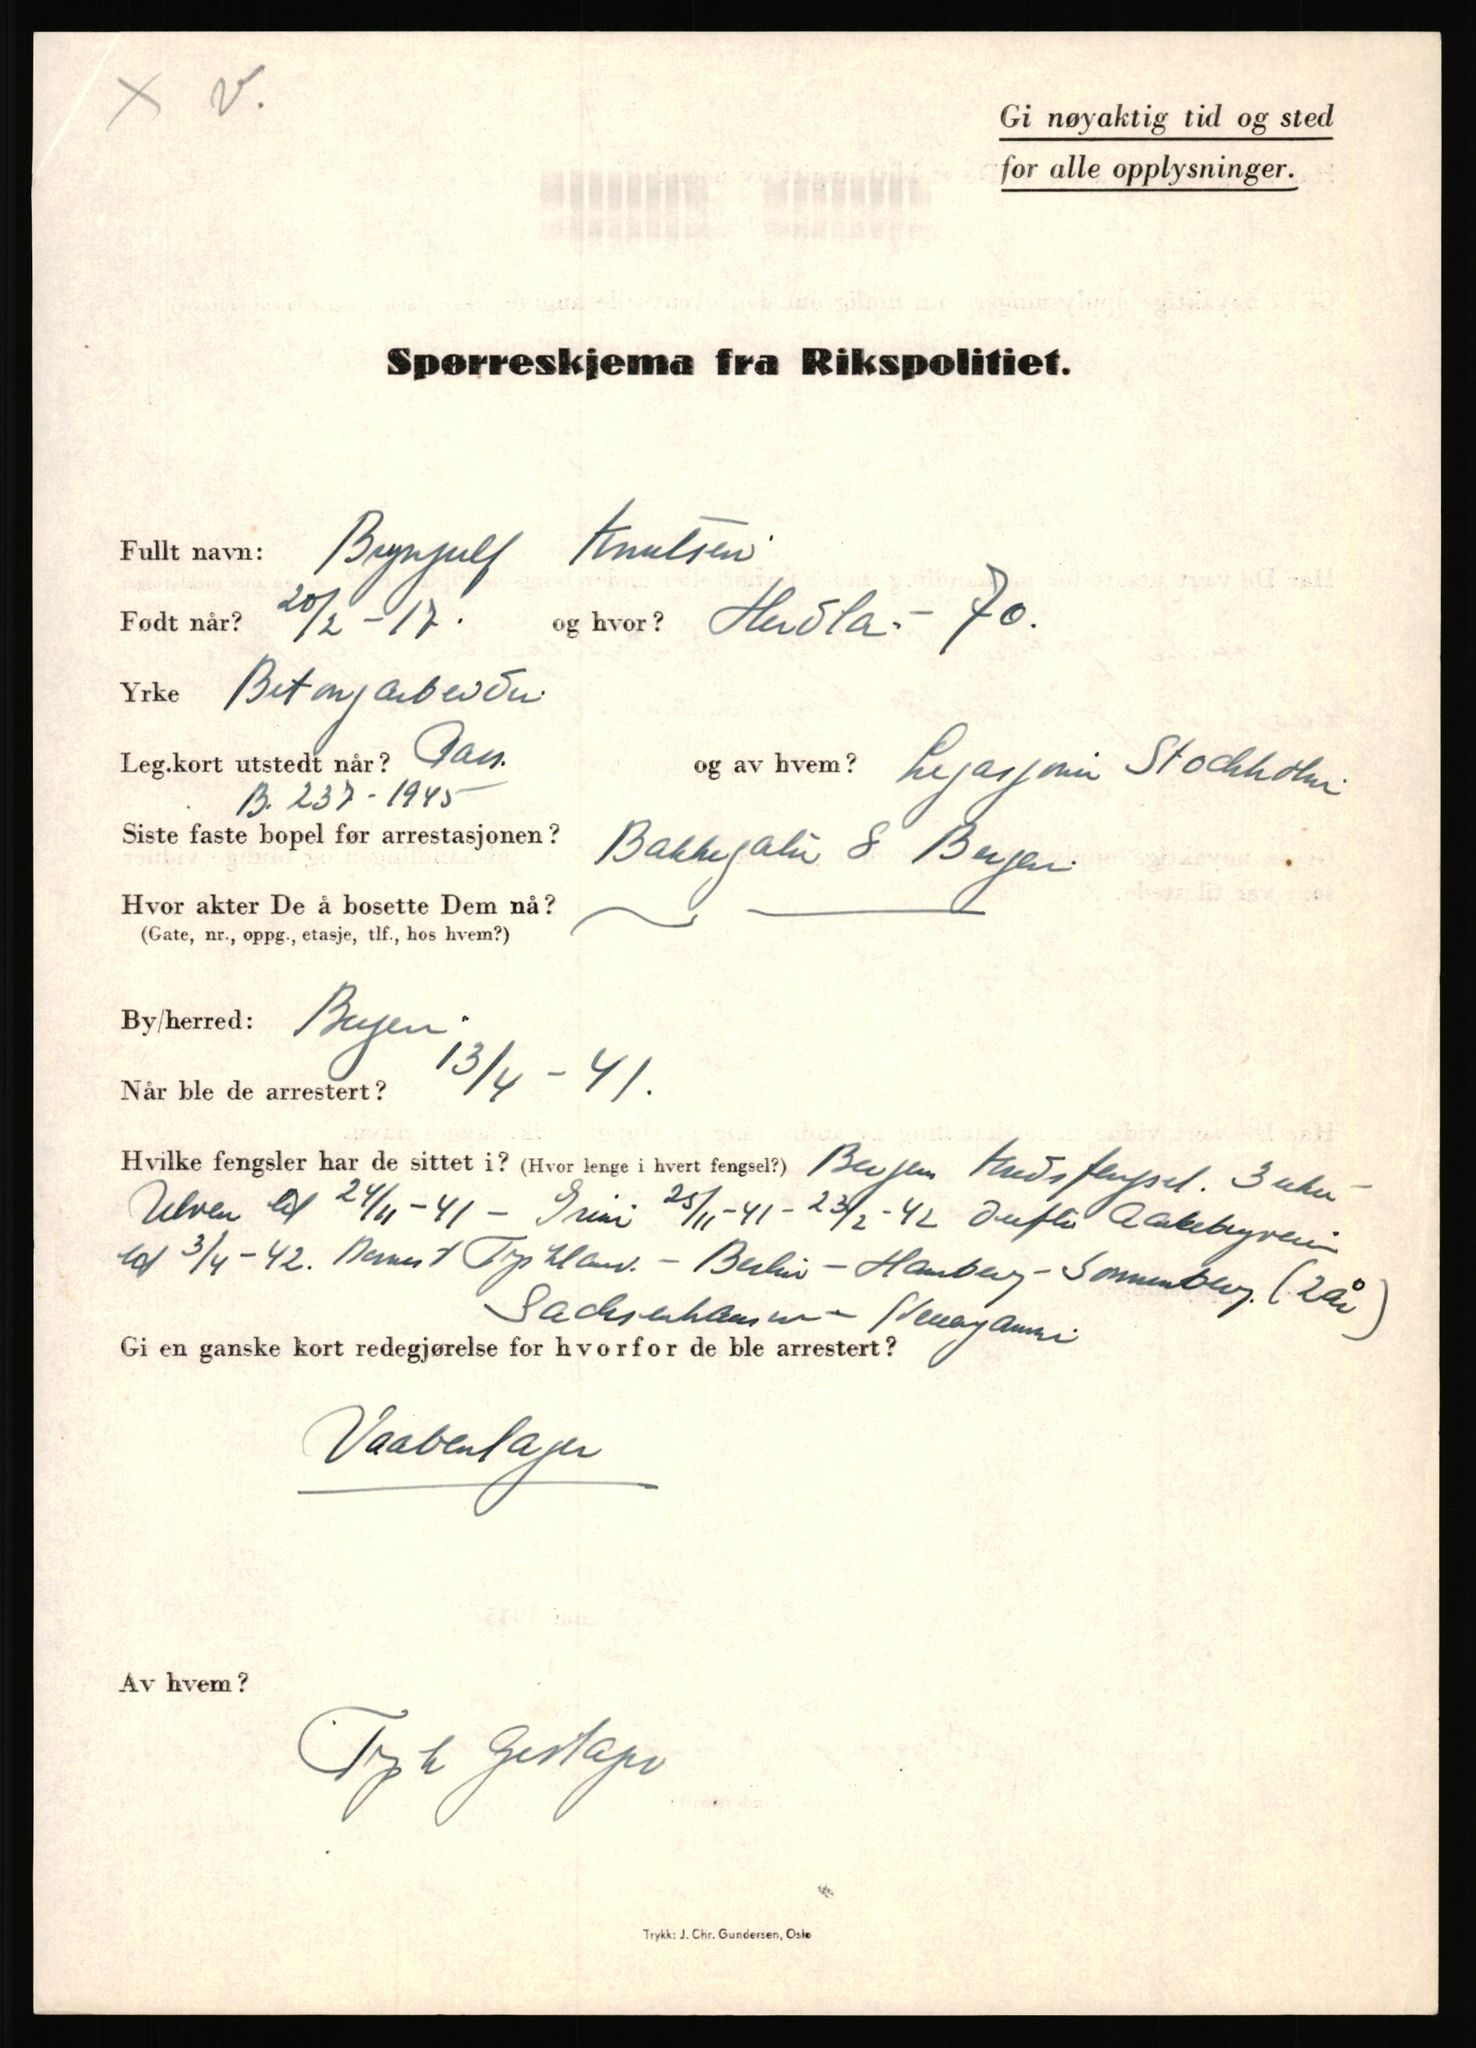 x V.
Gi nøyaktig tid og sted
for alle opplysninger.
Spørreskjema fra Rikspolitiet.
Fullt navn: Brynjulf Knutsen
Født når? 20/2 - 17. og hvor? Herdla. - 70.
Yrke Betongarbeider
Leg.kort utstedt når? Pass. og av hvem? Legasjonen Stockholm
B. 237 - 1945
Siste faste bopel før arrestasjonen? Bakkegaten 8 Bergen
Hvor akter De å bosette Dem nå?
(Gate, nr., oppg., etasje, tlf., hos hvem?)
By/herred: Bergen.
Når ble de arrestert? 13/4 - 41.
Hvilke fengsler har de sittet i? (Hvor lenge i hvert fengsel?) Bergen Kredsfengsel. 3 uker -
Ulven til 24/11 - 41 - Grini 25/11 - 41 - 23/2 - 42 derfter Aakebergveien
til 3/4 - 42. Tyskland. - Berlin - Hamberg - Sonnenberg. (2 år)
Sachsenhausen -
Gi en ganske kort redegjørelse for hvorfor de ble arrestert?
Vaabenlager
Av hvem?
Tysk Gestapo
Trykk: J. Chr. Gundersen, Oslo